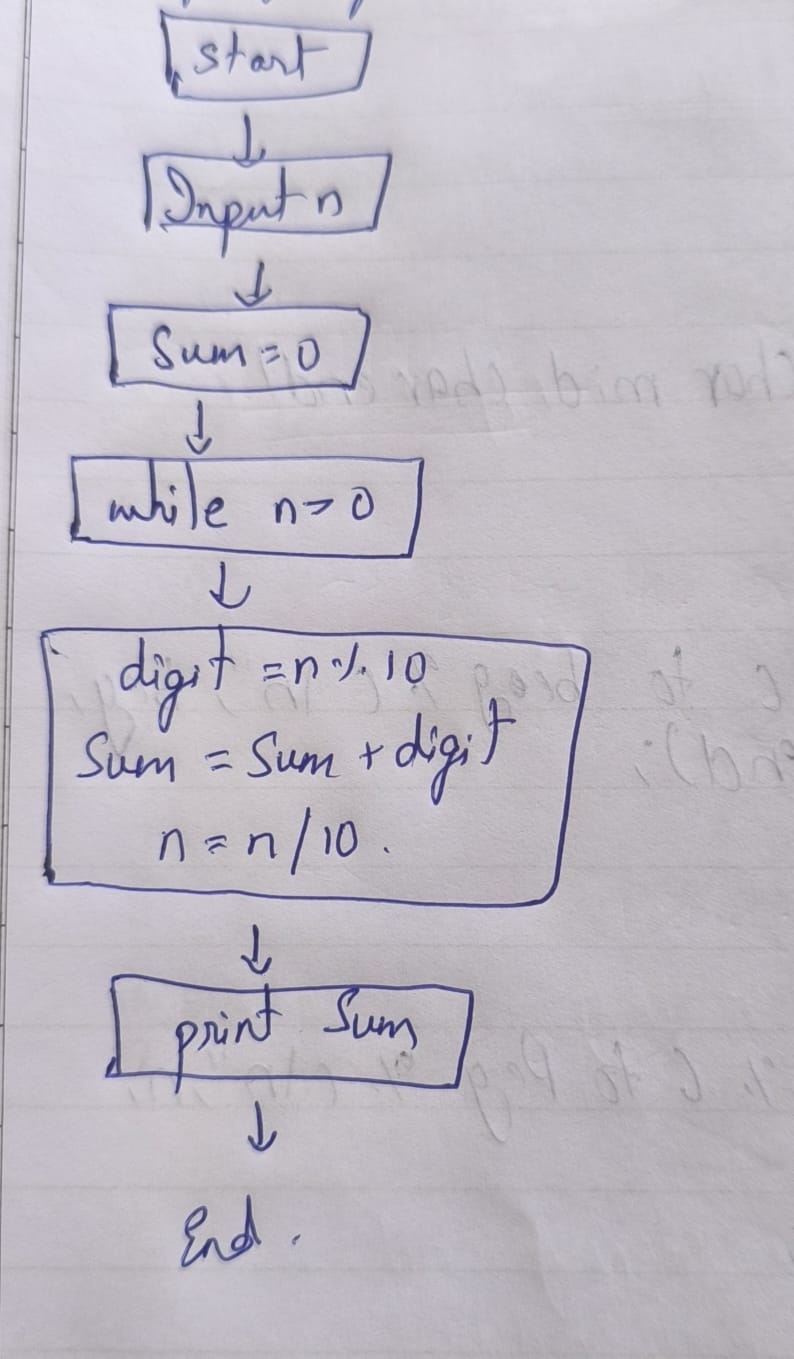 start
↓
Input n
↓
Sum = 0
↓
while n > 0
↓
digit = n % 10
Sum = Sum + digit
n = n / 10.
↓
print Sum
↓
End.